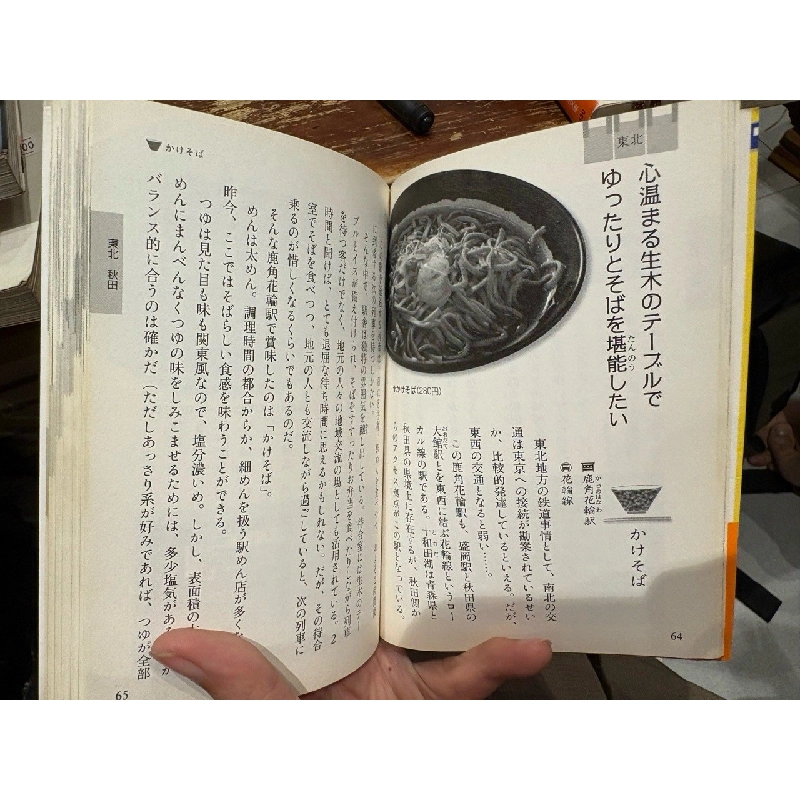 東北
心温まる生木のテーブルで
ゆったりとそばを堪能したい
たんのう
かけそば
鹿角花輪駅
かづのはなわ
花輪線
かけそば(280円)
東北地方の鉄道事情として、南北の交
通は東京への接続が勘案されているせい
か、比較的発達しているといえる。だが、
東西の交通となると弱い……。
この鹿角花輪駅も、盛岡駅と秋田県の
大館駅とを東西に結ぶ花輪線というロー
カル線の駅である。十和田湖は青森県と
秋田県の県境上に存在するが、秋田側か
64
かけそば
を待つ客だけでなく、地元の人々の地域交流の場としても活用されている。2
時間と聞けば、とても退屈な待ち時間に思えるかもしれない。だが、その待合
室でそばを食べつつ、地元の人とも交流しながら過ごしていると、次の列車に
乗るのが惜しくなるくらいでもあるのだ。
そんな鹿角花輪駅で賞味したのは「かけそば」。
めんは太めん。調理時間の都合からか、細めんを扱う駅めん店が多くな
昨今、ここではそばらしい食感を味わうことができる。
つゆは見た目も味も関東風なので、塩分濃いめ。しかし、表面積の
めんにまんべんなくつゆの味をしみこませるためには、多少塩気があ
バランス的に合うのは確かだ(ただしあっさり系が好みであれば、つゆが全部
東北 秋田
65